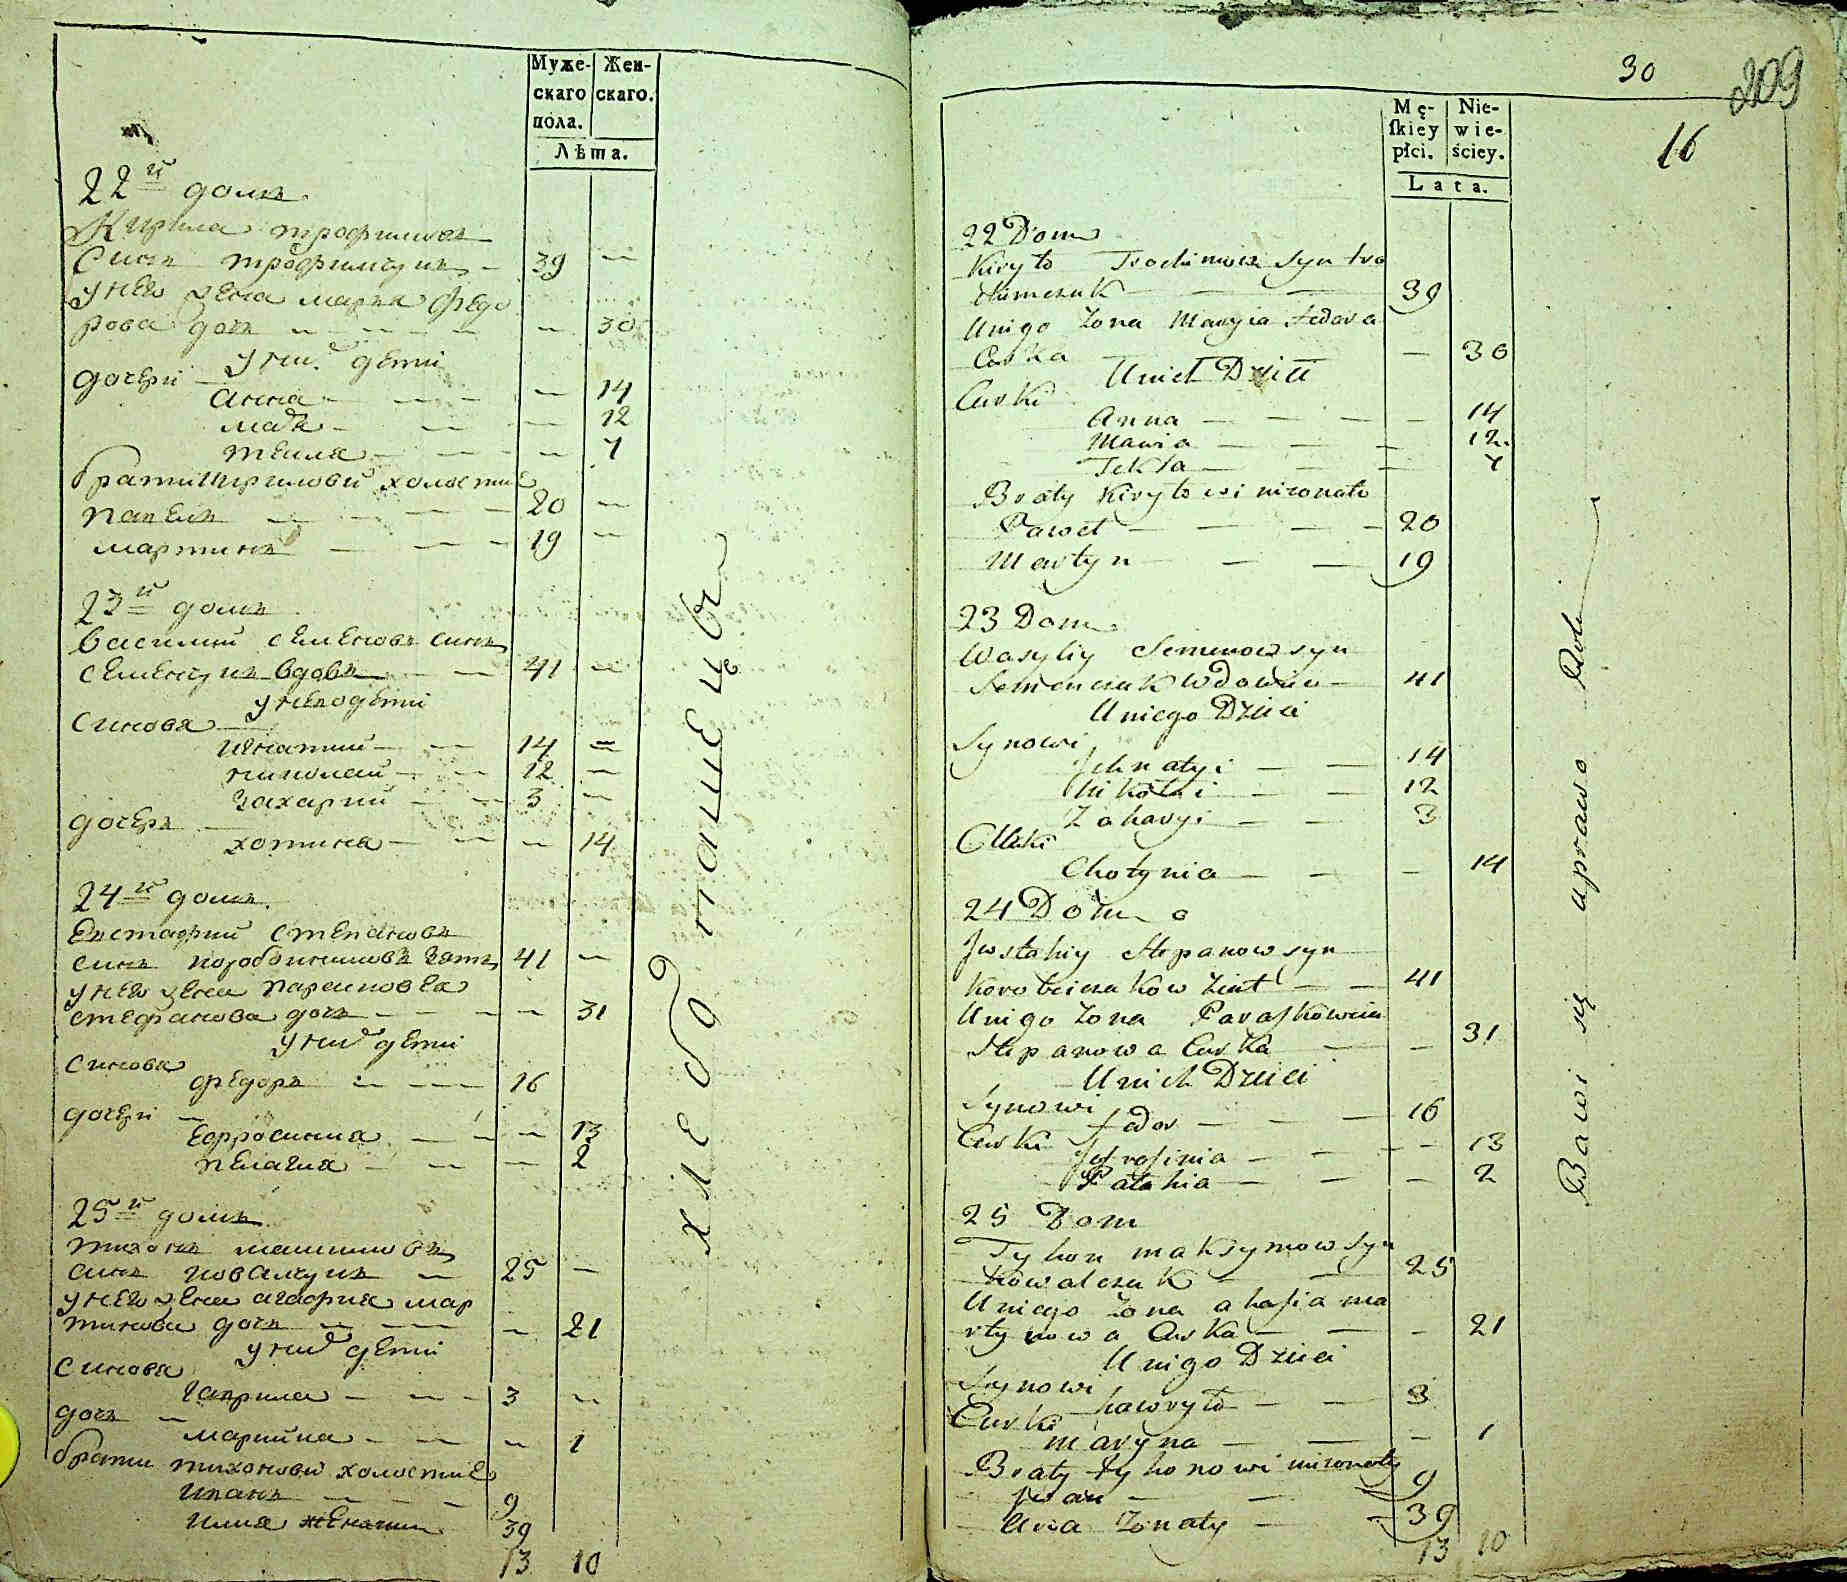 Муже-
скаго
пола.
Жен-
скаго.
Лѣта.
22й домъ
Кирила трофимовъ
Синъ трофимчукъ - 39 -
у него жена марья Федо
рова дочь - - 30
у них дети
дочери
анна - - 14
маря - - 12
текля - - 7
брати кириловы холостые
павелъ - 20 -
мартинъ - 19 -
23й домъ
василий семеновъ синъ
семенчукъ вдовъ - 41 -
у него дети
синовя
игнатий - 14 -
николай - 12 -
захарий - 3 -
дочеръ
хотина - - 14
24й домъ
Евстафий степановъ
синъ зять 41 -
у него жена
стефанова дочь - - 31
у них дети
синовя
федоръ - 16
дочери
Ефросиния - - 13
пелагия - - 2
25й домъ
тихонъ
синъ ковалчукъ - 25 -
у него жена агафия мар
тинова дочь - - 21
у них дети
синовя
гаврила - 3 -
дочь
марина - - 1
брати тихоновы холостые
иванъ - 9
илия женатий 39
13 10
хлебопашецы
30
209
16
Mę-
skiey
płci.
Nie-
wie-
ściey.
Lata.
22 Dom
Kiryło Trochimow Syn tro
chimczuk - 39
Unigo Zona Maryia fedora
Curka - - 30
Unich Dzieci
Curki
Anna - - 14
Maria - - 12
Tekla - - 7
Braty Kiryłowi nizonate
Paweł - 20
Martyn - 19
23 Dom
Wasyliy Semenow syn
Semenczuk Wdowiec - 41
Uniego Dzieci
Synowi
Jchnatyi - 14
Nikołai - 12
Zaharyi - 3
Curki
Chotynia - - 14
24 Dom
Jwstahiy Stepanow syn
Ziat - 41
Unigo Zona Paraskowia
Stepanowa Curka - - 31
Unich Dzieci
Synowi
fedor - 16
Curki
Jefrosinia - - 13
Palahia - - 2
25 Dom
Tyhon maksymow Syn
Kowalczuk - 25
Uniego Zona ahafia ma
rtynowa Curka - - 21
Unigo Dzieci
Synowi
hawryło - 3
Curki
maryna - - 1
Braty tyhonowi nizonaty
Jwan - 9
Zonaty - 39
13 10
Bawi się uprawo Roli